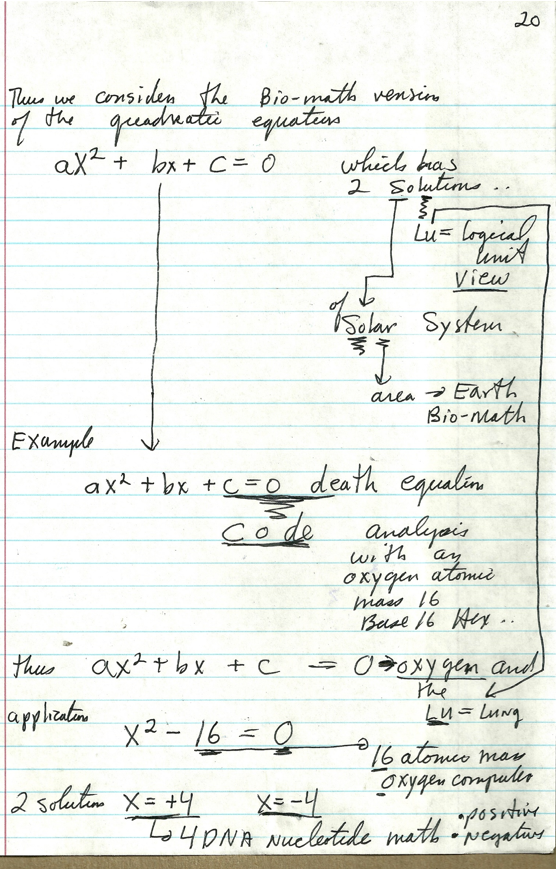 20
Thus we consider the Bio-math version
of the quadratic equation
ax² + bx + c = 0
which has
2 Solutions ..
Lu = Logical
unit
View
of
Solar System
area → Earth
Bio-Math
Example
ax² + bx + c = 0 death equation
Code analysis
with an
oxygen atomic
mass 16
Base 16 Hex ..
thus ax² + bx + c = 0 → oxygen and
the
Lu = Lung
application
x² - 16 = 0
16 atomic mass
oxygen computer
2 solution x = +4 x = -4
4 DNA nucleotide math • positive
• negative